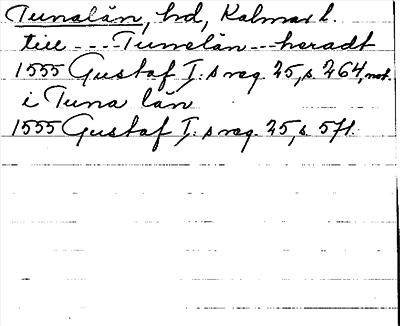 Tunalän, hd, Kalmar l.
till --- Tunelän -- heradt
1555 Gustaf I:s reg. 25, s. 264, not.
i Tuna län
1555 Gustaf I:s reg. 25, s. 571.